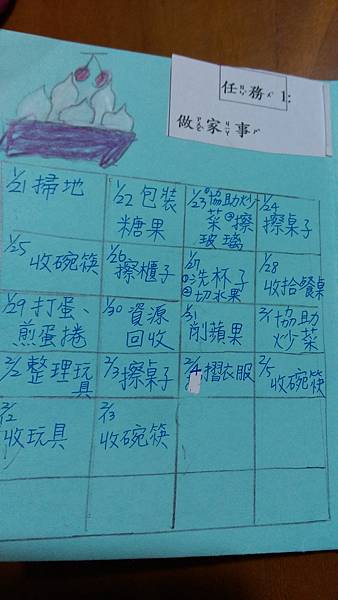 任務1:
做家事
1/21 掃地
1/22 包裝
糖果
1/23 ①協助炒
菜②擦
玻璃
1/24
擦桌子
1/25
收碗筷
1/26
擦櫃子
1/27
①洗杯子
②切水果
1/28
收拾餐桌
1/29 打蛋、
煎蛋捲
1/30 資源
回收
1/31
削蘋果
2/1 協助
炒菜
2/2 整理玩
具
2/3 擦桌子
2/4 摺衣服
2/5
收碗筷
2/12
收玩具
2/13
收碗筷